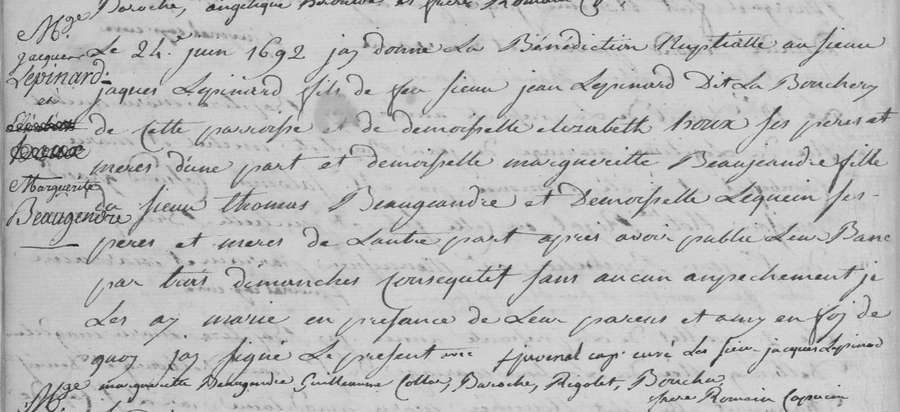 Baroche, angelique
M.ge
jacques
Lepinard
et
Marguerite
Beaugendre
Le 24.e juin 1692 jay donné La Bénédiction Nuptialle au sieur
jaques Lepinard fils de feu sieur jean Lepinard Dit La Bouchery
de cette parroisse et de demoisselle elizabeth houx ses peres et
meres d'une part et demoiselle margueritte Beaujeandre fille
du sieur thomas Beaugeandre et Demoisselle Lequein ses
peres et meres de Lautre part après avoir publié Leur Banc
par trois dimanches Consequtif sans aucun anpechement je
Les ay marié en presance de Leur parens et amy en foy de
quoy jay signé Le present avec f. juvenal cap. curé Les sieur jacques Lepinard
marguerite Beaugendre, Guilleaume Collas, Baroche, Rigolet, Boucher
frere Romain Capucin
M.ge